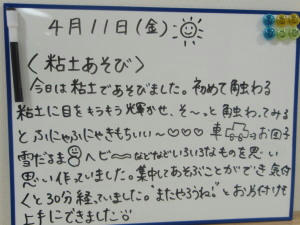 4月11日(金)
〈粘土あそび〉
今日は粘土であそびました。初めて触わる
粘土に目をキラキラ輝かせ、そ〜っと触わってみる
とふにゃふにゃきもちいい〜♡♡♡ 車 お団子
雪だるま ヘビ〜などなどいろいろなものを思い
思い作っていました。集中してあそぶことができ気付
くと30分経っていました。"またやろうね"とお片付けも
上手にできました